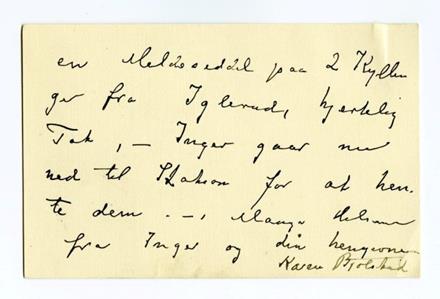 en Meldeseddel paa 2 Kyllin
ger fra Iglerud, hjertelig
Tak, — Inger gaar nu
ned til Station for at hen-
te dem. —, Mange Hilsener
fra Inger og din hengivne
Karen Bjølstad